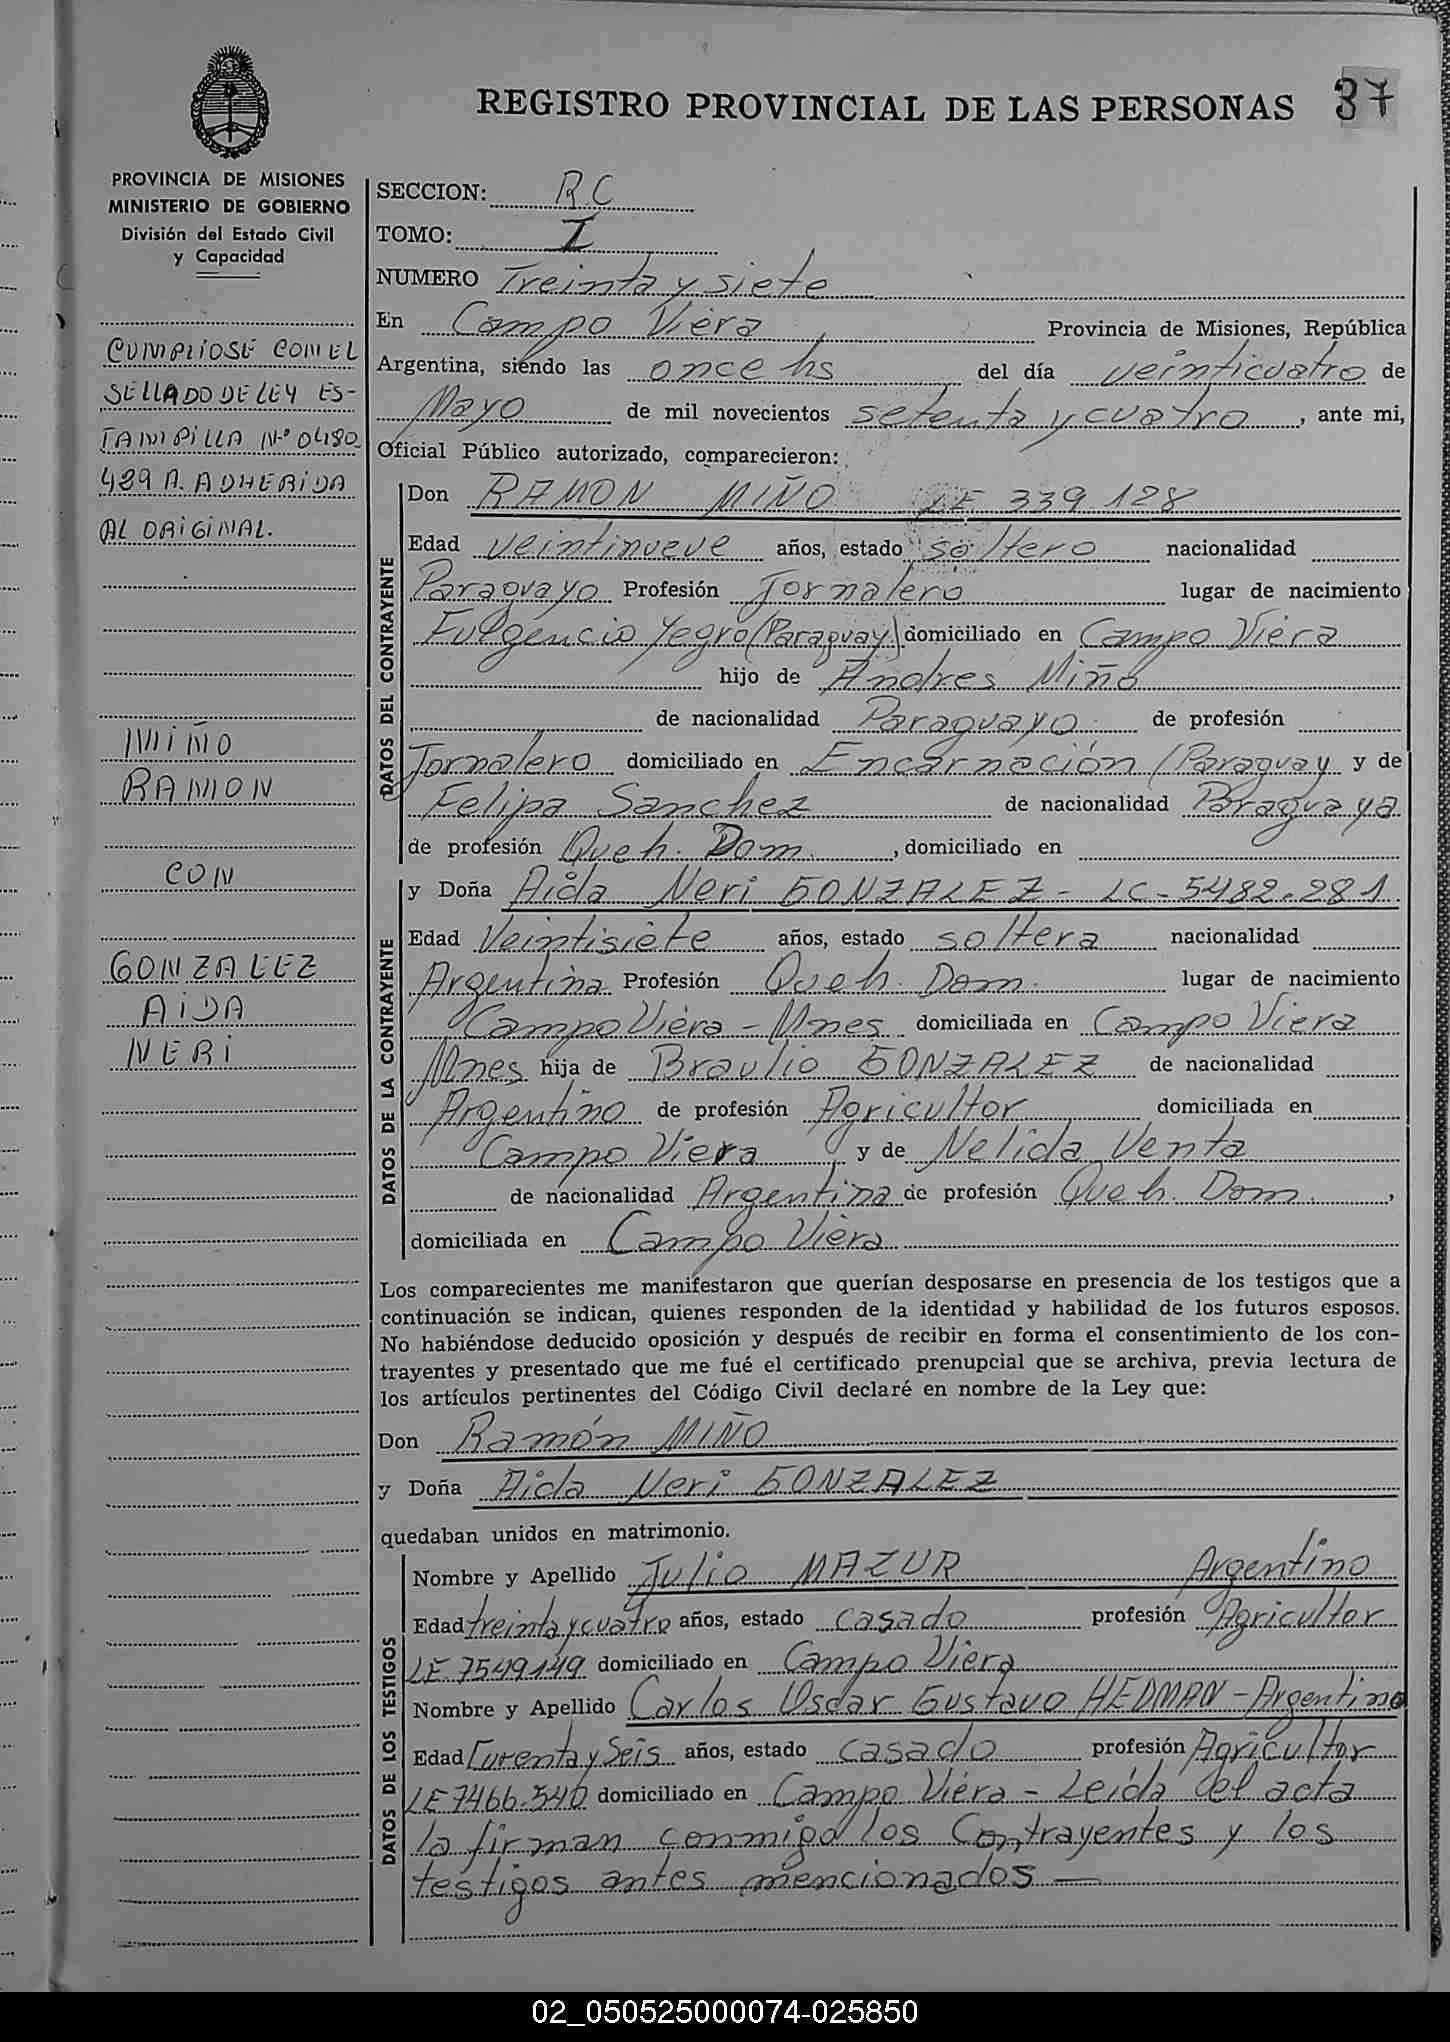 REGISTRO PROVINCIAL DE LAS PERSONAS 37
PROVINCIA DE MISIONES
MINISTERIO DE GOBIERNO
División del Estado Civil
y Capacidad
CUMPLIOSE CON EL
SELLADO DE LEY ES-
TAMPILLA Nº 0480
489 A. ADHERIDA
AL ORIGINAL.
MIÑO
RAMON
CON
GONZALEZ
AIDA
NERI
SECCION: R.C
TOMO: I
NUMERO Treinta y siete
En Campo Viera Provincia de Misiones, República
Argentina, siendo las once hs del día veinticuatro de
Mayo de mil novecientos setenta y cuatro, ante mi,
Oficial Público autorizado, comparecieron:
DATOS DEL CONTRAYENTE
Don RAMON MIÑO LE 339.128
Edad veintinueve años, estado soltero nacionalidad
Paraguayo Profesión Jornalero lugar de nacimiento
Fulgencio Yegro (Paraguay) domiciliado en Campo Viera
hijo de Andres Miño
de nacionalidad Paraguayo de profesión
Jornalero domiciliado en Encarnación (Paraguay y de
Felipa Sanchez de nacionalidad Paraguaya
de profesión Queh. Dom. , domiciliado en
DATOS DE LA CONTRAYENTE
y Doña Aida Neri GONZALEZ - LC - 5482.281
Edad Veintisiete años, estado soltera nacionalidad
Argentina Profesión Queh. Dom. lugar de nacimiento
Campo Viera - Mnes domiciliada en Campo Viera
Mnes hija de Braulio GONZALEZ de nacionalidad
Argentino de profesión Agricultor domiciliada en
Campo Viera y de Nelida Venta
de nacionalidad Argentina de profesión Queh. Dom. ,
domiciliada en Campo Viera
Los comparecientes me manifestaron que querían desposarse en presencia de los testigos que a
continuación se indican, quienes responden de la identidad y habilidad de los futuros esposos.
No habiéndose deducido oposición y después de recibir en forma el consentimiento de los con-
trayentes y presentado que me fué el certificado prenupcial que se archiva, previa lectura de
los artículos pertinentes del Código Civil declaré en nombre de la Ley que:
Don Ramón MIÑO
y Doña Aida Neri GONZALEZ
quedaban unidos en matrimonio.
DATOS DE LOS TESTIGOS
Nombre y Apellido Julio MAZUR Argentino
Edad treinta y cuatro años, estado casado profesión Agricultor
LE 7549149 domiciliado en Campo Viera
Nombre y Apellido Carlos Oscar Gustavo HEDMAN - Argentino
Edad Curenta y Seis años, estado casado profesión Agricultor
LE 7466.540 domiciliado en Campo Viera - Leida el acta
la firman conmigo los Contrayentes y los
testigos antes mencionados —
02_050525000074-025850